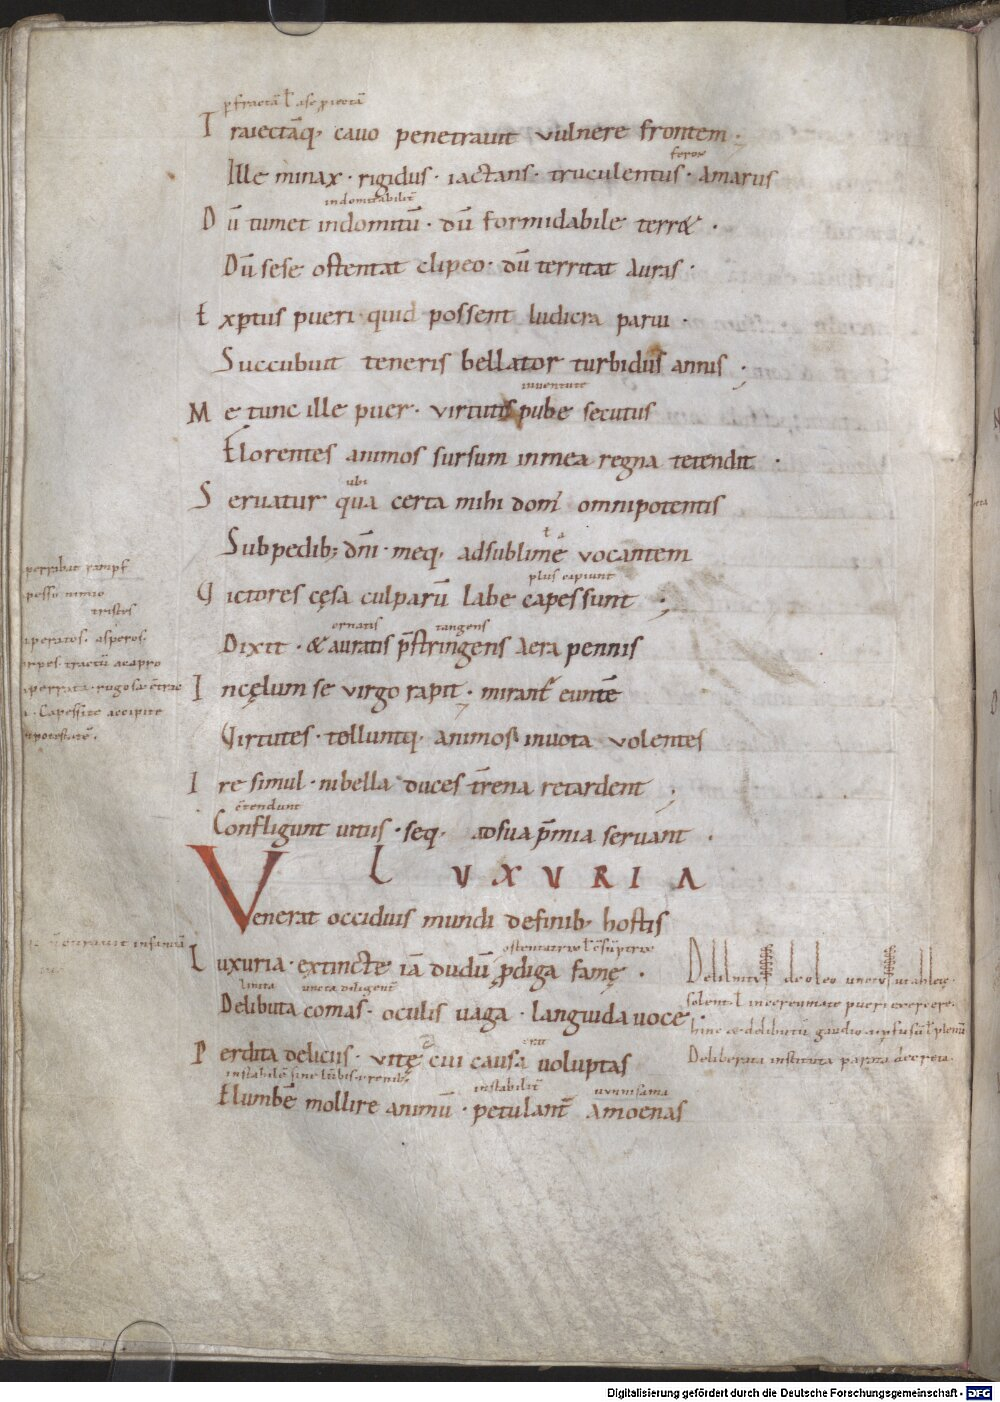 Traiectāq; cauo penetrauit vulnere frontem;
ferox
Ille minax · rigidus · iactans · truculentus · amarus
indomitabilit̄
Dū tumet indomitū · dū formidabile terr& ·
Dū sese ostentat clipeo · dū territat auras ·
Expertus pueri quid possent ludicra parui ·
Succubuit teneris bellator turbidus annis ;
iuuentute
Me tunc ille puer · virtutis pube secutus
Florentes animos sursum in mea regna tetendit ·
ubi
Seruatur qua certa mihi dom' omnipotentis
Sub pedib; dn̄i · meq; ad sublime vocantem
plus capiunt
Victores cęsa culparū labe capessunt ;
ornatis tangens
Dixit · & auratis p̄stringens aera pennis
In cęlum se virgo rapit · mirant̄ eunte
Virtutes · tolluntq; animos in uota volentes
Ire simul · ni bella duces t̄rena retardent ;
c̄tendunt
Confligunt uitiis · seq; ad sua p̄mia seruant ·
LUXURIA
Venerat occiduis mundi de finib; hostis
Luxuria · extincte iā dudū prodiga famę ·
uncta diligent̄
Delibuta comas · oculis uaga · languida uoce ·
erat
Perdita deliciis · vitę cui causa uoluptas
instabilit̄
Elumbē mollire animū · petulant̄ amoenas
tristes
asperos
Capessite accipite
insaniā
de oleo
gaudio
Deliberata instituta parata decreta
Digitalisierung gefördert durch die Deutsche Forschungsgemeinschaft - DFG